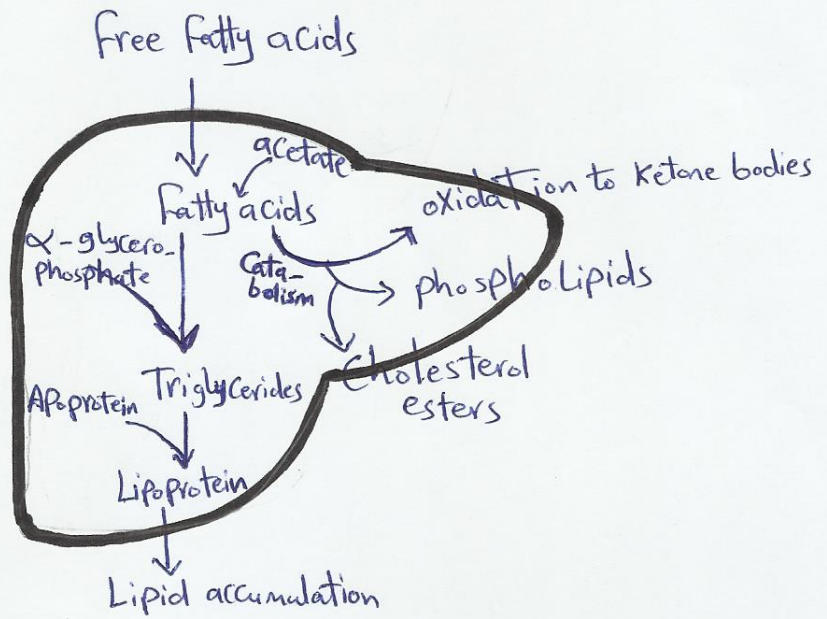 Free Fatty acids
acetate
Fatty acids
oxidation to Ketone bodies
α-glycero-
phosphate
Cata-
bolism
phospholipids
Triglycerides
Cholesterol
esters
Apoprotein
Lipoprotein
Lipid accumulation